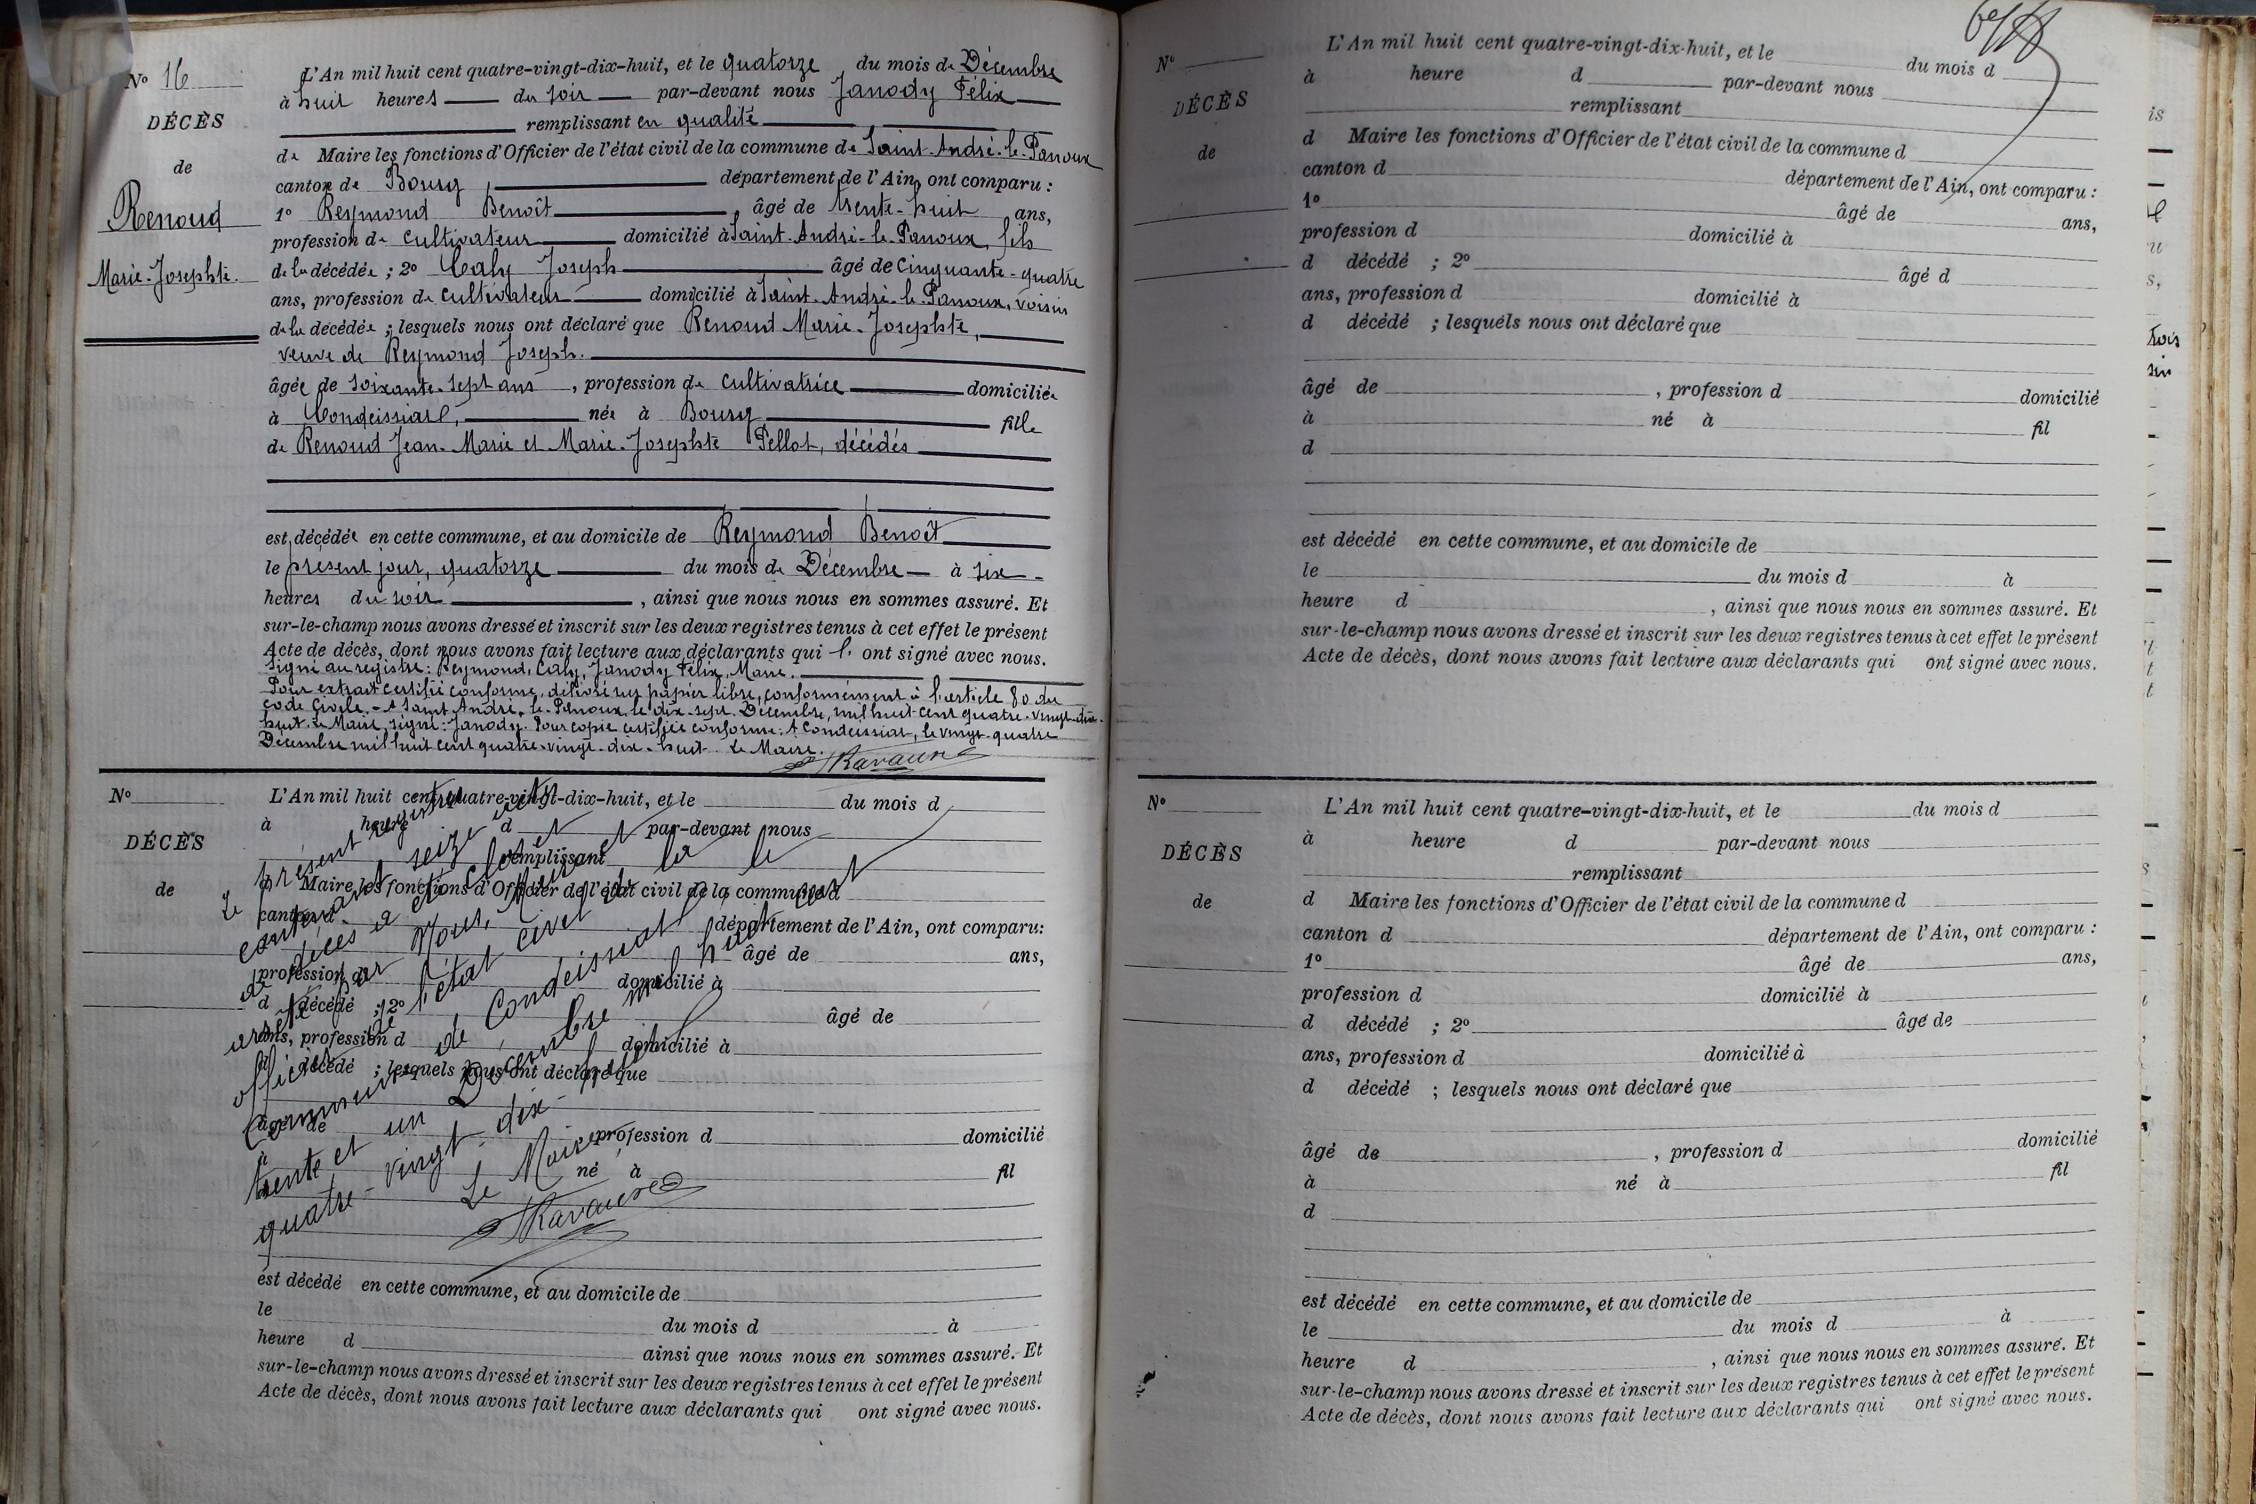 N° 16
DÉCÈS
de
Renoud
Marie-Josephte.
L'An mil huit cent quatre-vingt-dix-huit, et le quatorze du mois de Décembre
à huit heures du soir par-devant nous Janody Félix
remplissant en qualité
de Maire les fonctions d'Officier de l'état civil de la commune de Saint-André-le-Panoux
canton de Bourg département de l'Ain, ont comparu :
1° Reymond Benoît âgé de trente-huit ans,
profession de cultivateur domicilié à Saint-André-le-Panoux, fils
de la décédée ; 2° Caly Joseph âgé de cinquante-quatre
ans, profession de cultivateur domicilié à Saint-André-le-Panoux, voisin
de la décédée ; lesquels nous ont déclaré que Renoud Marie-Josephte,
veuve de Reymond Joseph.
âgée de soixante-sept ans , profession de cultivatrice domiciliée
à Condeissiat, née à Bourg fille
de Renoud Jean-Marie et Marie-Josephte Pellot, décédés
est décédée en cette commune, et au domicile de Reymond Benoît
le présent jour, quatorze du mois de Décembre à six
heures du soir , ainsi que nous nous en sommes assuré. Et
sur-le-champ nous avons dressé et inscrit sur les deux registres tenus à cet effet le présent
Acte de décès, dont nous avons fait lecture aux déclarants qui l' ont signé avec nous.
Signé au registre : Reymond, Caly, Janody Félix, Maire.
Pour extrait certifié conforme, délivré sur papier libre, conformément à l'article 80 du
code Civile. - A Saint-André-le-Panoux, le dix-sept Décembre, mil huit cent quatre-vingt-dix-
huit. le Maire, signé : Janody. Pour copie certifiée conforme : A Condeissiat, le vingt-quatre
Décembre mil huit cent quatre-vingt-dix-huit. Le Maire.
Ravaure
N°
DÉCÈS
de
L'An mil huit cent quatre-vingt-dix-huit, et le du mois d
à heure d par-devant nous
remplissant
d Maire les fonctions d'Officier de l'état civil de la commune d
canton d département de l'Ain, ont comparu:
âgé de ans,
profession d domicilié à
d décédé ; 2° âgé de
ans, profession d domicilié à
d décédé ; lesquels nous ont déclaré que
âgé de profession d domicilié
à né à fil
est décédé en cette commune, et au domicile de
le du mois d à
heure d ainsi que nous nous en sommes assuré. Et
sur-le-champ nous avons dressé et inscrit sur les deux registres tenus à cet effet le présent
Acte de décès, dont nous avons fait lecture aux déclarants qui ont signé avec nous.
Le présent registre
contenant seize actes
de décès a été clos et
arrêté par Nous, Maire et
officier de l'état civil de la
Commune de Condeissiat le
trente et un Décembre mil huit cent
quatre-vingt-dix-huit
Le Maire
Ravaure
N°
DÉCÈS
de
L'An mil huit cent quatre-vingt-dix-huit, et le du mois d
à heure d par-devant nous
remplissant
d Maire les fonctions d'Officier de l'état civil de la commune d
canton d département de l'Ain, ont comparu :
1° âgé de ans,
profession d domicilié à
d décédé ; 2° âgé d
ans, profession d domicilié à
d décédé ; lesquels nous ont déclaré que
âgé de , profession d domicilié
à né à fil
d
est décédé en cette commune, et au domicile de
le du mois d à
heure d , ainsi que nous nous en sommes assuré. Et
sur-le-champ nous avons dressé et inscrit sur les deux registres tenus à cet effet le présent
Acte de décès, dont nous avons fait lecture aux déclarants qui ont signé avec nous.
N°
DÉCÈS
de
L'An mil huit cent quatre-vingt-dix-huit, et le du mois d
à heure d par-devant nous
remplissant
d Maire les fonctions d'Officier de l'état civil de la commune d
canton d département de l'Ain, ont comparu :
1° âgé de ans,
profession d domicilié à
d décédé ; 2° âgé de
ans, profession d domicilié à
d décédé ; lesquels nous ont déclaré que
âgé de , profession d domicilié
à né à fil
d
est décédé en cette commune, et au domicile de
le du mois d à
heure d , ainsi que nous nous en sommes assuré. Et
sur-le-champ nous avons dressé et inscrit sur les deux registres tenus à cet effet le présent
Acte de décès, dont nous avons fait lecture aux déclarants qui ont signé avec nous.